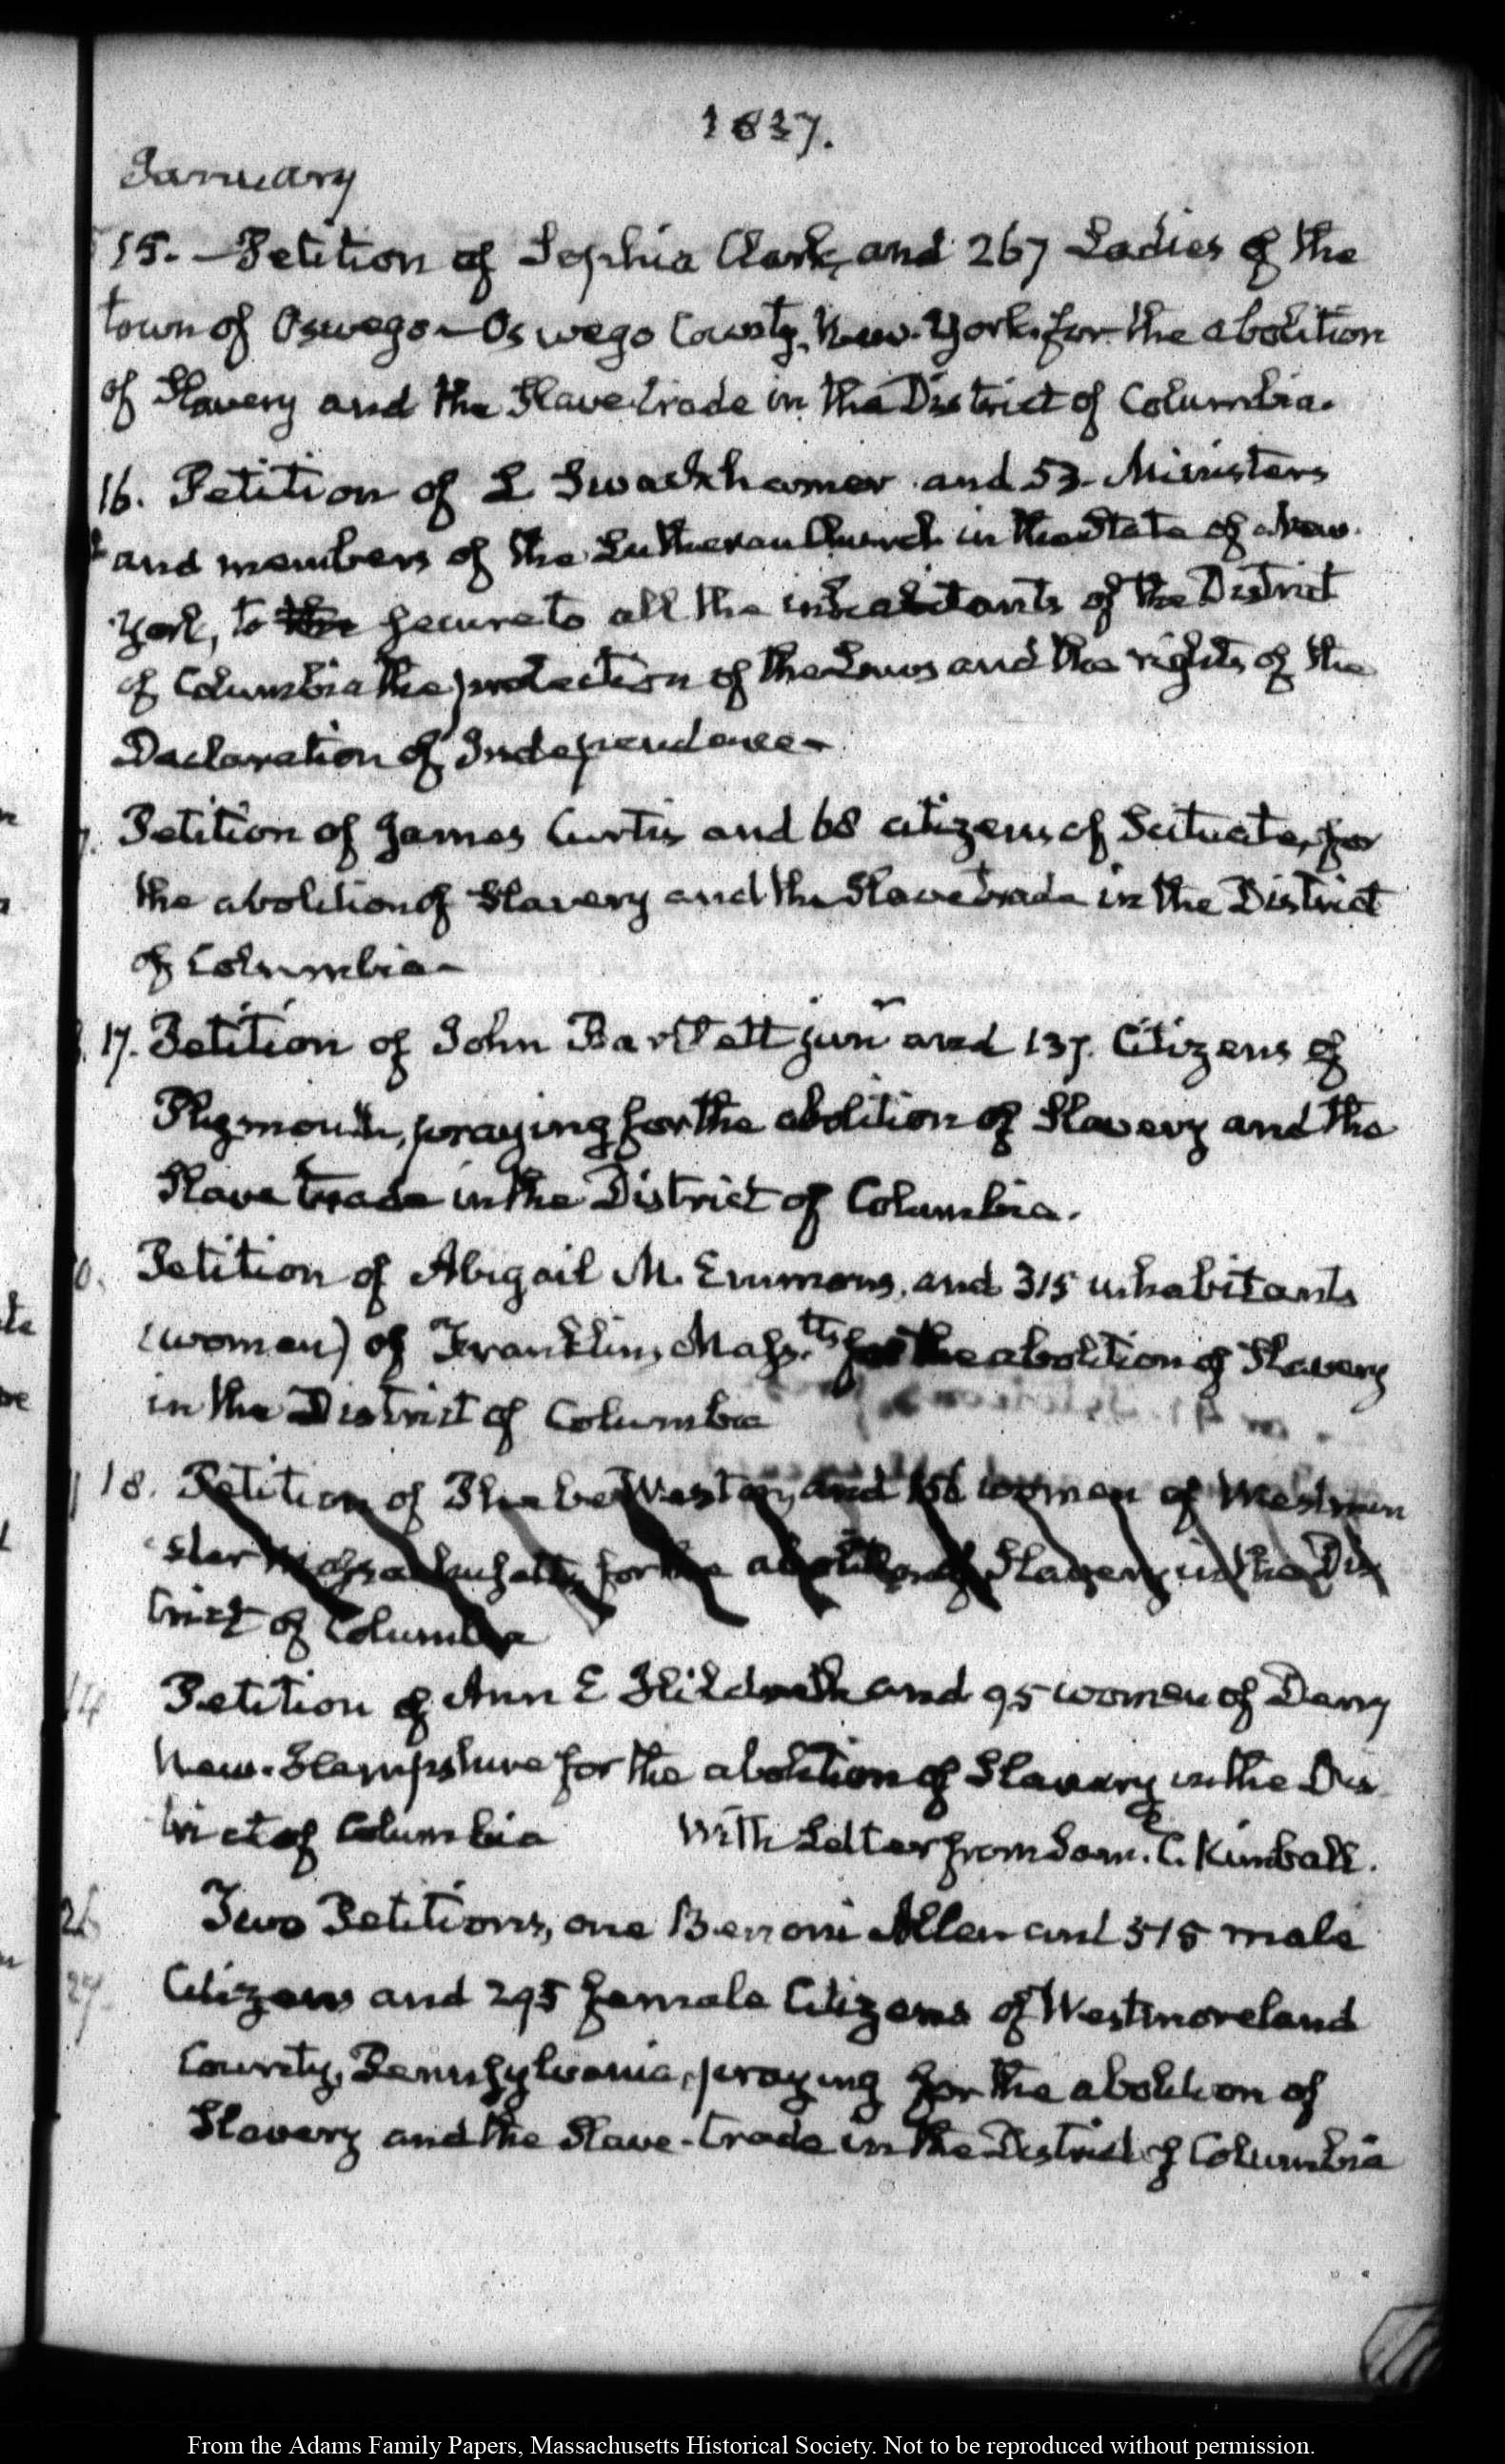 1837.
January
15. — Petition of Sophia Clark, and 267 Ladies of the
town of Oswego — Oswego County, New-York, for the abolition
of Slavery and the Slave trade in the District of Columbia.
16. Petition of L Swackhamer and 53 Ministers
and members of the Lutheran Church in the State of New-
York, to the secure to all the inhabitants of the District
of Columbia the protection of the Laws and the rights of the
Declaration of Independence —
Petition of James Curtis and 68 citizens of Scituate, for
the abolition of Slavery and the Slave trade in the District
of Columbia —
17. Petition of John Bartlett junr and 137. Citizens of
Plymouth, praying for the abolition of Slavery and the
Slave trade in the District of Columbia.
Petition of Abigail M. Emmons, and 315 inhabitants
(women) of Franklin, Mass.tts for the abolition of Slavery
in the District of Columbia
18. Petition of Phebe Weston, and 156 women of Westmin
ster Massachusetts, for the abolition of Slavery in the Dis
trict of Columbia
14 Petition of Ann E Hildreth and 95 women of Derry
New-Hampshire for the abolition of Slavery in the Dis
trict of Columbia With Letter from C. Kimball.
26 Two Petitions, one Bennoni Allen and 515 male
27. Citizens and 295 female Citizens of Westmoreland
County, Pennsylvania, praying for the abolition of
Slavery and the Slave-trade in the District of Columbia
From the Adams Family Papers, Massachusetts Historical Society. Not to be reproduced without permission.